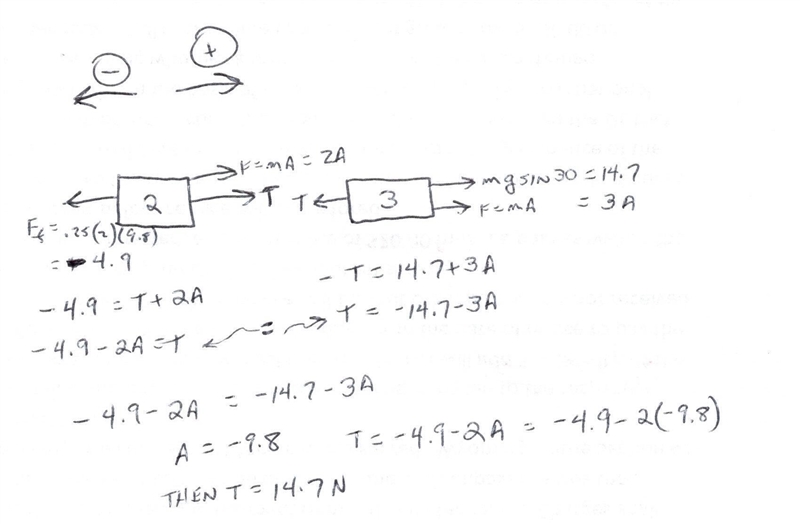 ⊖ ⊕
F=mA = 2A
2 T
T 3
mg SIN 30 = 14.7
F=mA = 3A
Ff = .25(2)(9.8)
= 4.9
- T = 14.7+3A
-4.9 = T+2A
T = -14.7-3A
-4.9-2A=T
=
-4.9-2A = -14.7-3A
A = -9.8
T=-4.9-2A = -4.9-2(-9.8)
THEN T=14.7N